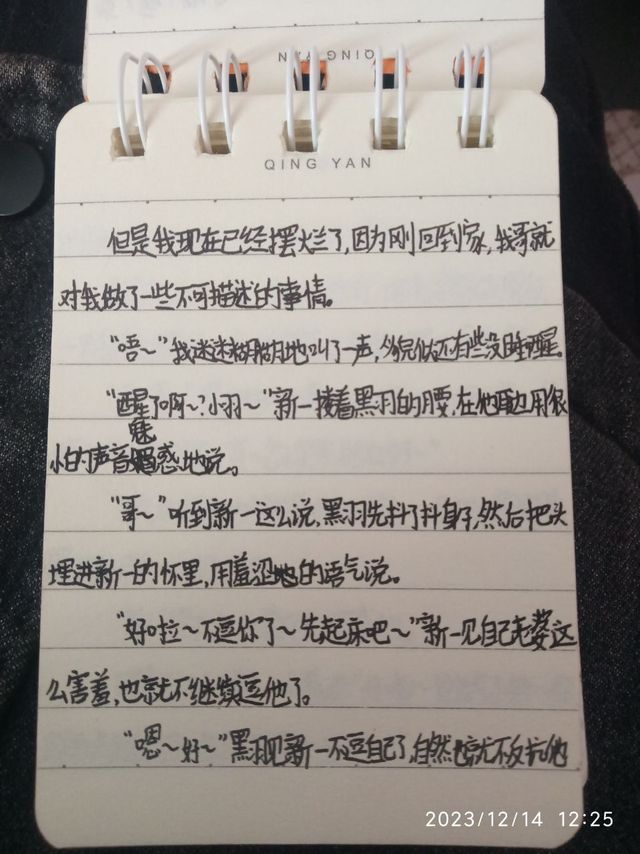 QING YAN
QING YAN
但是我现在已经摆烂了,因为刚回到家,我哥就
对我做了一些不可描述的事情。
“唔~”我迷迷糊糊地叫了一声,貌似还有些没睡醒。
“醒了啊~?小羽~”新一搂着黑羽的腰,在他耳边用很
魅
小的声音惑地说。
“哥~”听到新一这么说,黑羽先抖了抖身子,然后把头
埋进新一的怀里,用羞涩的语气说。
“好啦~不逗你了~先起床吧~”新一见自己老婆这
么害羞,也就不继续逗他了。
“嗯~好~”黑羽见新一不逗自己了,自然也就不反抗他
2023/12/14 12:25